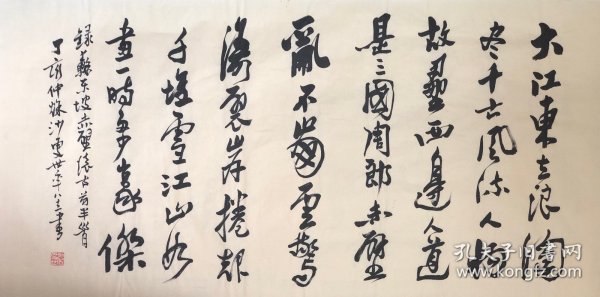 大江東去浪淘
尽千古風流人物
故壘西邊人道
是三國周郎赤壁
亂石崩雲驚
濤裂岸捲起
千堆雪江山如
畫一時多少豪傑
錄蘇東坡赤壁懷古前半首
丁亥仲秋沙
孔夫子旧书网
www.kongfz.com